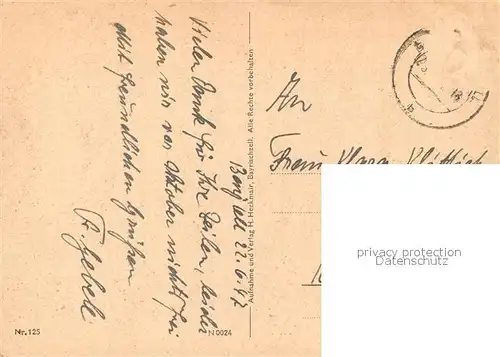 22.6.42
Vielen Dank für Ihre Zeilen, leider
haben wir vor Oktober nichts frei
Mit freundlichen Grüßen
Aufnahme und Verlag H. Heckmair, Bayrischzell. Alle Rechte vorbehalten
An
Frau Klara
privacy protection
Datenschutz
Nr. 125
N 0024